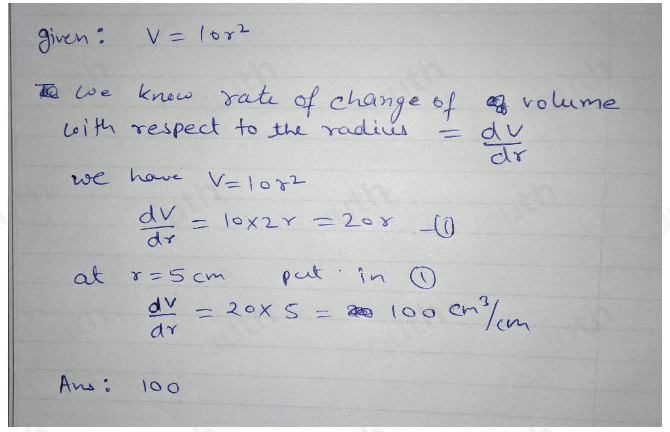 given: V = 10r²
We know rate of change of volume
with respect to the radius = dV/dr
we have V=10r²
dV/dr = 10×2r = 20r —①
at r=5cm put in ①
dV/dr = 20×5 = 100 cm³/cm
Ans: 100